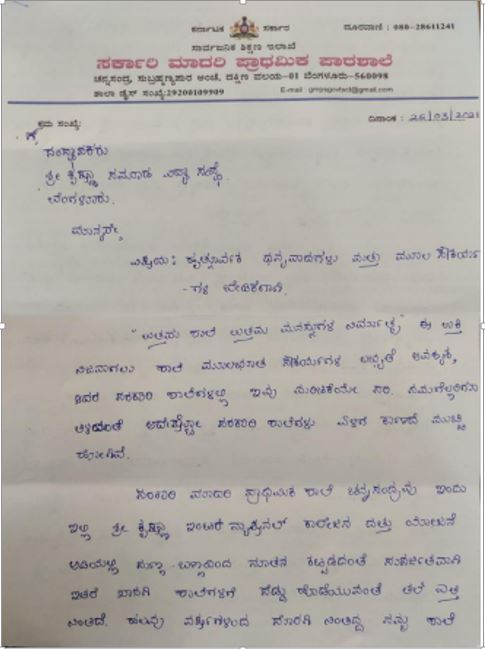 ಕರ್ನಾಟಕ ಸರ್ಕಾರ
ದೂರವಾಣಿ : 080-28611241
ಸಾರ್ವಜನಿಕ ಶಿಕ್ಷಣ ಇಲಾಖೆ
ಸರ್ಕಾರಿ ಮಾದರಿ ಪ್ರಾಥಮಿಕ ಪಾಠಶಾಲೆ
ಚನ್ನಸಂದ್ರ, ಸುಬ್ರಹ್ಮಣ್ಯಪುರ ಅಂಚೆ, ದಕ್ಷಿಣ ವಲಯ-01 ಬೆಂಗಳೂರು-560098
ಶಾಲಾ ಡೈಸ್ ಸಂಖ್ಯೆ:29200109909
ಕ್ರಮ ಸಂಖ್ಯೆ:
ದಿನಾಂಕ : 26/03/2021
ಶ್ರೀ ಕೃಷ್ಣಾ ಸಮೂಹ ವಿದ್ಯಾ ಸಂಸ್ಥೆ.
ಬೆಂಗಳೂರು.
ಮಾನ್ಯರೇ,
ವಿಷಯ : ಹೃತ್ಪೂರ್ವಕ ಧನ್ಯವಾದಗಳು ಮತ್ತು ಮೂಲ ಸೌಕರ್ಯ
-ಗಳ ಬೇಡಿಕೆಗಾಗಿ.
"ಉತ್ತಮ ಶಾಲೆ ಉತ್ತಮ ಮನಸ್ಸುಗಳ ನಿರ್ಮಾತೃ" ಈ ಉಕ್ತಿ
ನಿಜವಾಗಲು ಶಾಲೆ ಮೂಲಭೂತ ಸೌಕರ್ಯಗಳ ಲಭ್ಯತೆ ಅವಶ್ಯಕ,
ಆದರೆ ಸರಕಾರಿ ಶಾಲೆಗಳಲ್ಲಿ ಇವು ಮರೀಚಿಕೆಯೇ ಸರಿ.
ಅದೆಷ್ಟೋ ಸರಕಾರಿ ಶಾಲೆಗಳು ಏಳಿಗೆ ಕಾಣದೆ ಮುಚ್ಚಿ
ಹೋಗಿವೆ.
ಸರಕಾರಿ ಮಾದರಿ ಪ್ರಾಥಮಿಕ ಶಾಲೆ ಚನ್ನಸಂದ್ರವು ಇಂದು
ಇಲ್ಲಿ ಶ್ರೀ ಕೃಷ್ಣಾ ಇಂಟರ್ ನ್ಯಾಶನಲ್ ಕಾಲೇಜಿನ ದತ್ತು ಯೋಜನೆ
ಅಡಿಯಲ್ಲಿ ಸುಣ್ಣ-ಬಣ್ಣದಿಂದ ನೂತನ ಕಟ್ಟಡದಂತೆ ಸುಸಜ್ಜಿತವಾಗಿ
ಇತರೆ ಖಾಸಗಿ ಶಾಲೆಗಳಿಗೆ ಸೆಡ್ಡು ಹೊಡೆಯುವಂತೆ ತಲೆ ಎತ್ತಿ
ನಿಂತಿದೆ. ಹಲವು ವರ್ಷಗಳಿಂದ ಸೊರಗಿ ನಿಂತಿದ್ದ ನಮ್ಮ ಶಾಲೆ